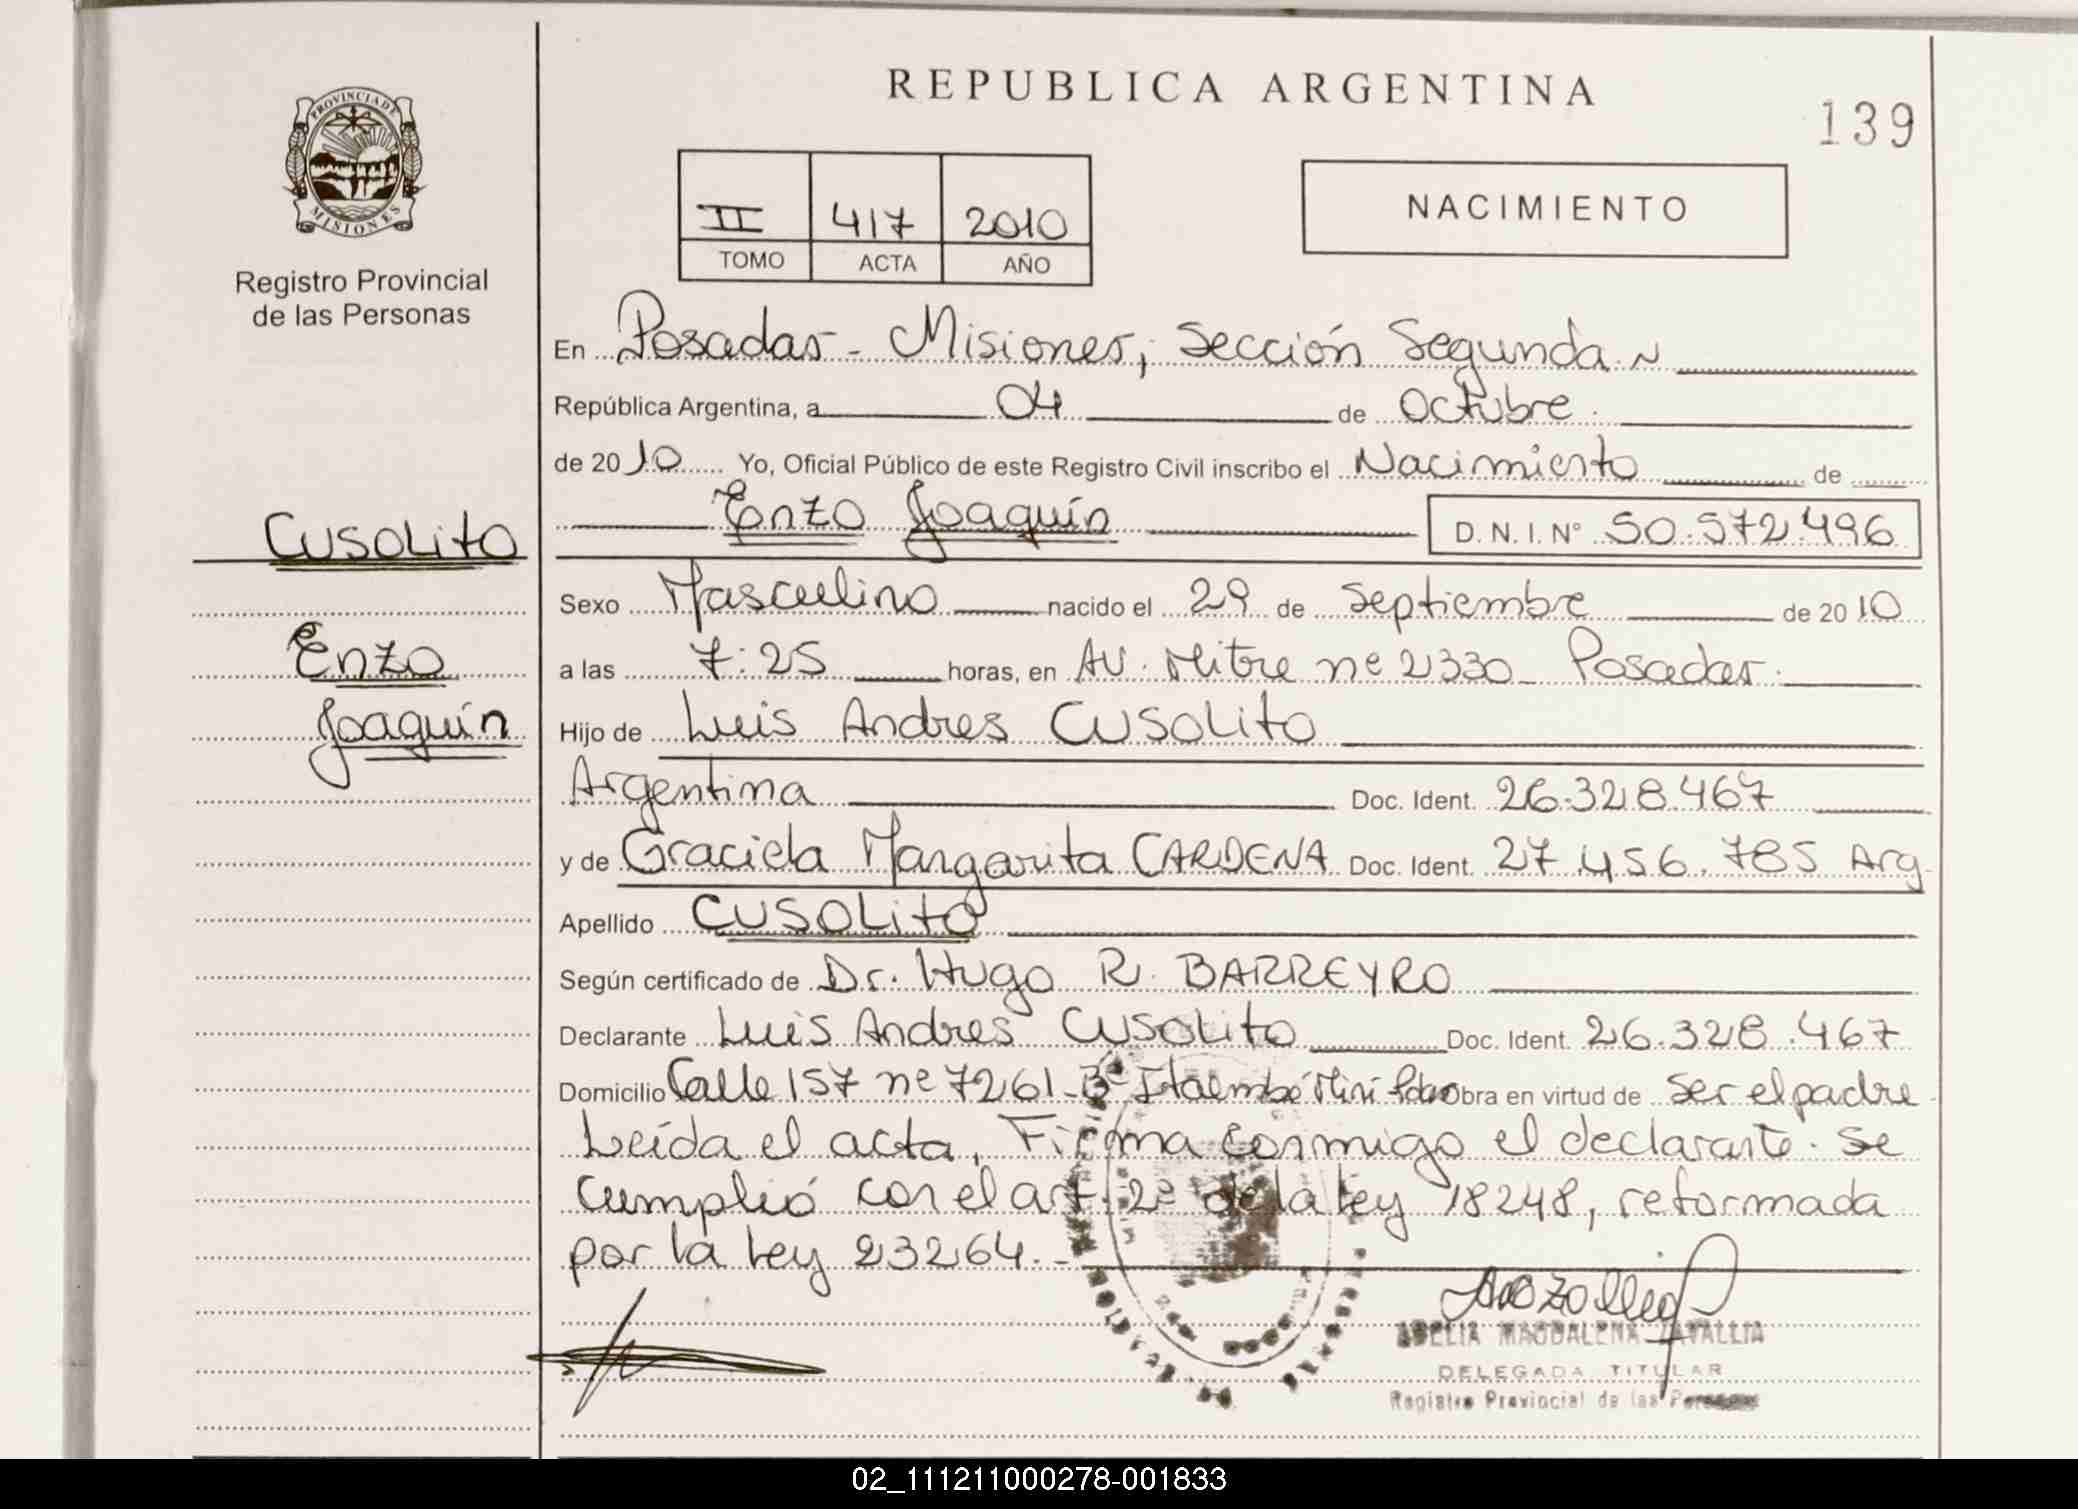 REPUBLICA ARGENTINA
139
PROVINCIA DE
MISIONES
Registro Provincial
de las Personas
II 417 2010
TOMO ACTA AÑO
NACIMIENTO
En Posadas - Misiones, Sección Segunda
República Argentina, a 04 de Octubre.
de 2010 Yo, Oficial Público de este Registro Civil inscribo el Nacimiento de
Enzo Joaquín D. N. I. Nº 50.572.496
CUSOLITO
Enzo
Joaquín
Sexo Masculino nacido el 29 de Septiembre de 2010
a las 7:25 horas, en AV. Mitre nº 2330 - Posadas.
Hijo de Luis Andres CUSOLITO
Argentina Doc. Ident. 26.328.467
y de Graciela Margarita CARDENA Doc. Ident. 27.456.785 Arg.
Apellido CUSOLITO
Según certificado de Dr. Hugo R. BARREYRO
Declarante Luis Andres CUSOLITO Doc. Ident. 26.328.467
Domicilio Calle 157 nº 7261 - Bº Itaembé Miní Pdas Obra en virtud de ser el padre
Leída el acta, Firma conmigo el declarante. Se
cumplió con el art. 2º de la ley 18248, reformada
por la ley 23264. -
ADELIA MAGDALENA ZAVALLIA
DELEGADA TITULAR
Registro Provincial de las Personas
02_111211000278-001833